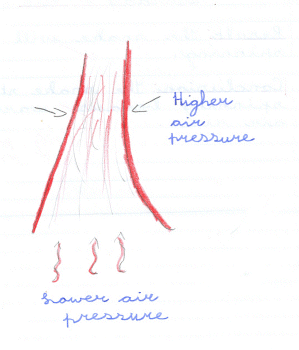 Higher
air
pressure
Lower air
pressure